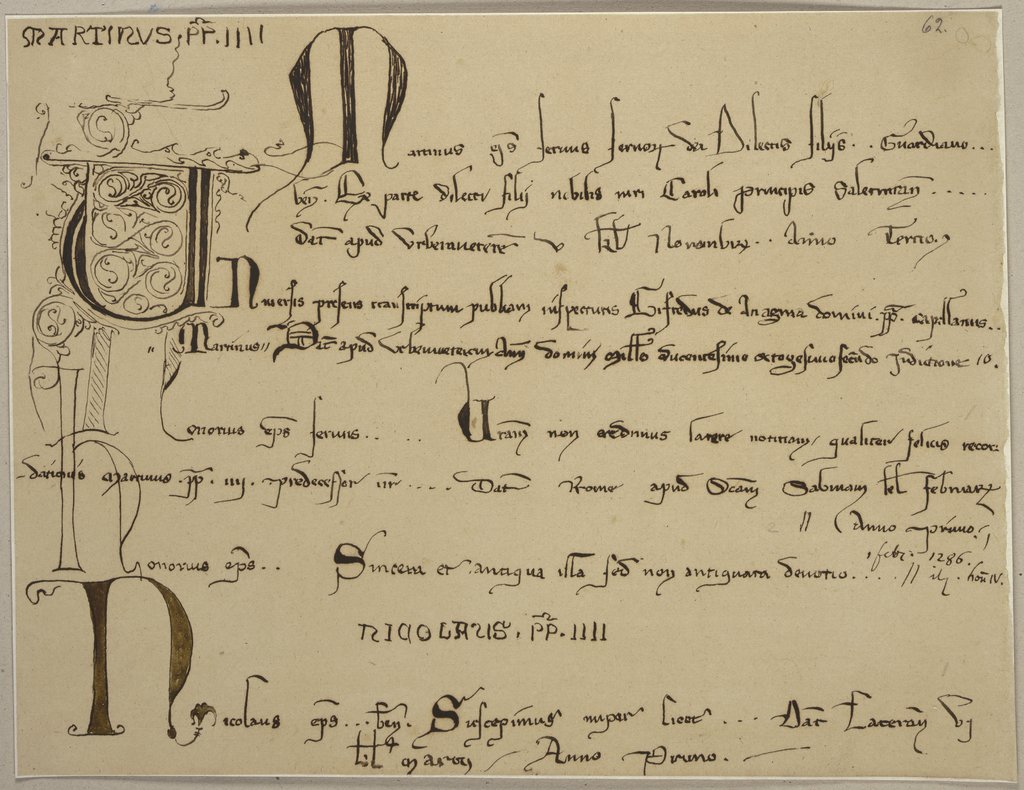 MARTINUS. PP. IIII
62.
Martinus eps servus servorz dei Dilectis filijs . . Guardiano . . .
ben. Ex parte dilecti filij nobilis viri Caroli principis Salernitan . . . . .
Dat apud Urbemveterē v kl Novembrz . . Anno Tercio
Universis presens transcriptum publicum inspecturis Gifredus de Anagnia domini . pp . capellanus . .
" Martinus" Dat apud Urbemveterem Ann domini Millo ducentesimo octogesimo secundo Indictione 10.
Honorius eps servus . . . . . Vram non credimus latere notitiam qualiter felicis recor:
-dationis Martinus . pp . IIII . predecessor nr . . . . Dat Rome apud Scam Sabinam kl februarz
// Anno primo.
1 febr. 1286.
Honorius eps . . Sincera et antiqua illa sed non antiquata devotio . . . . // Hon IV.
NICOLAUS. PP. IIII
Nicolaus eps . . . ben. Suscepimus nuper licet . . . Dat Lateran VJ
kl marcij Anno Primo.